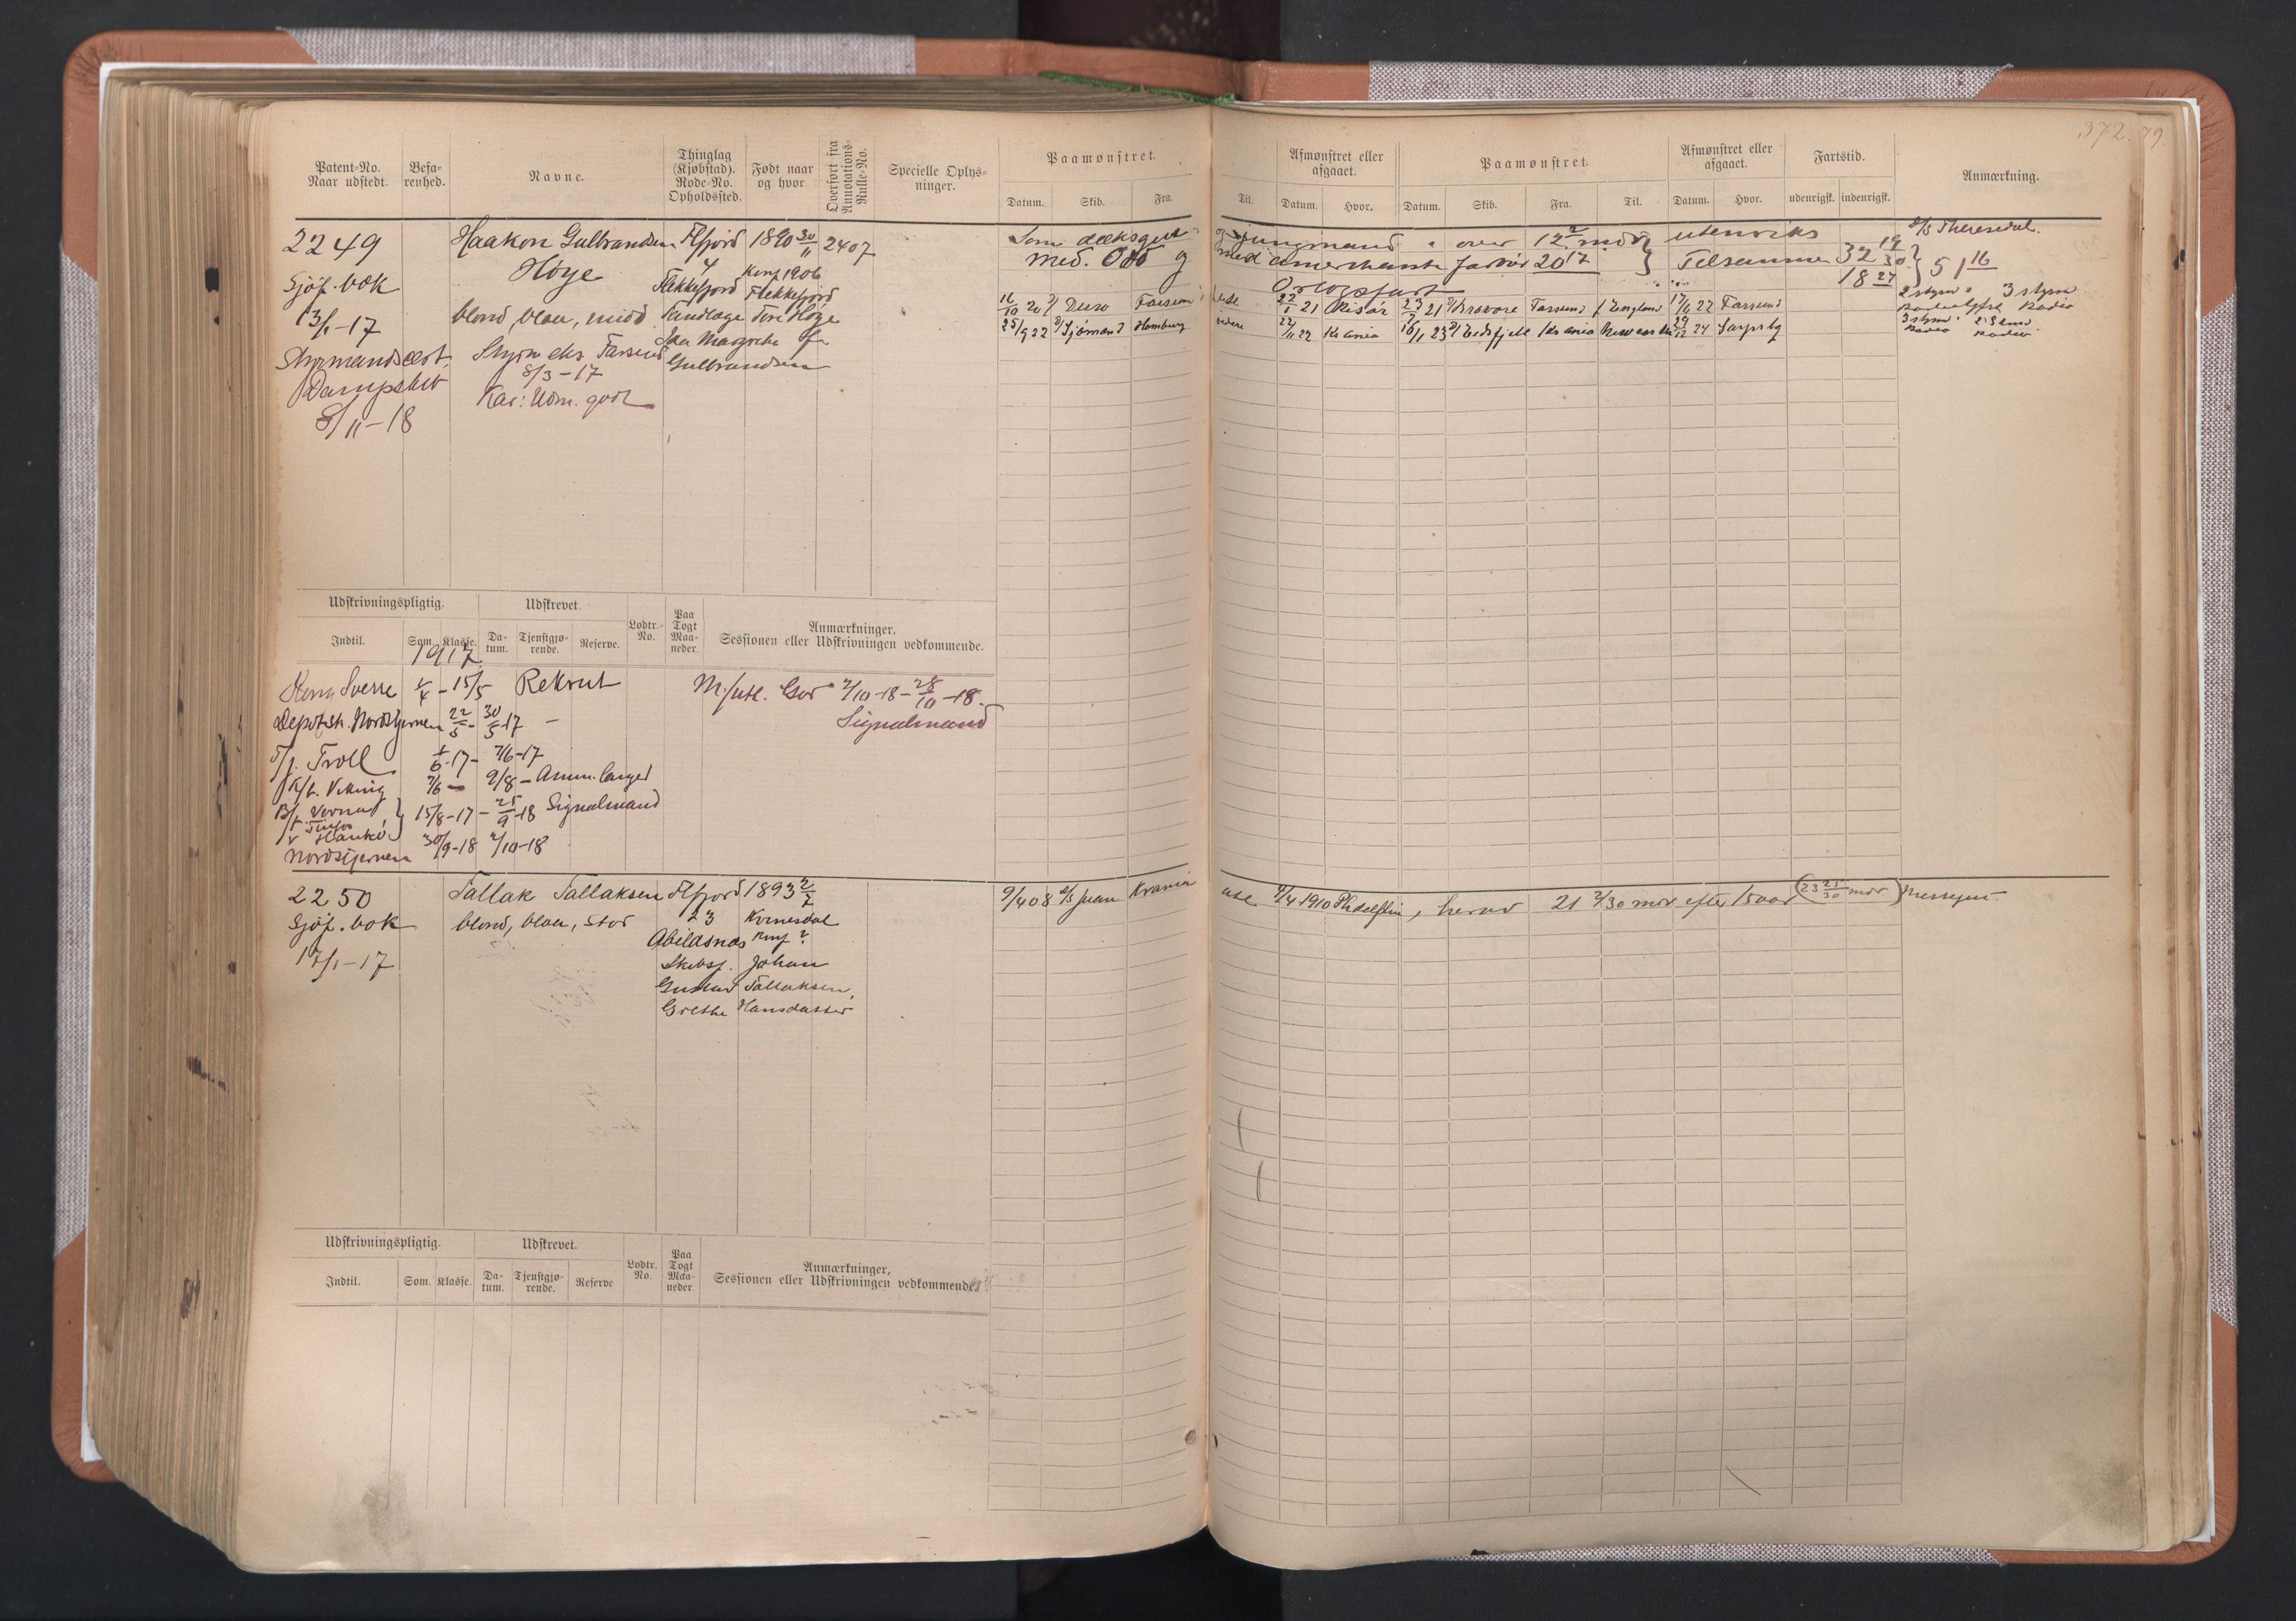 372. 79.
Patent-No. Naar udstedt.
Befarenhed.
Navne.
Thinglag (Kjøbstad). Rode-No. Opholdssted.
Født naar og hvor
Overført fra Annotations-Rulle-No.
Specielle Oplysninger.
Paamønstret.
Datum. Skib. Fra.
Til.
Afmønstret eller afgaaet.
Datum. Hvor.
Paamønstret.
Datum. Skib. Fra. Til.
Afmønstret eller afgaaet.
Datum. Hvor.
Fartstid.
udenrigsk. indenrigsk.
Anmærkning.
2249 Haakon Gulbrandsen Ffjord 1890 30/11 2407
Høye 4
Sjøf. bok Flekkefjord Konf 1906 Flekkefjord
13/1-17 blond, blaa, midd. Tandlæge Tore Høye
Styrmandscert. Styrm eks Farsund
8/3-17 Gulbrandsen
Dampskib Kar: Udm. godt
8/11-18
Som dæksgut og jungmand over 12 mdr utenriks
med amerikansk fartøi 20 17 Tilsammen 32 19/30
Orlogsfart 18 27 51 16
D/S Theresdal.
16/10 20 Farsund utl 22/1 21 Risør 23/7 21 Farsund England 17/6 22 Farsund
25/9 22 Sjømand Hamburg videre 22/11 22 Kr ania 16/1 23 Eidsfjell Kr ania 24 Sarpsbg
2 styrm 3 styrm
Radio
3 styrm
Radio Radio
Udskrivningspligtig. Udskrevet. Lodtr.-No. Paa Togt Maaneder. Anmærkninger, Sessionen eller Udskrivningen vedkommende.
Indtil. Som. Klasse. Datum. Tjenstgjørende. Reserve.
1917
Kong Sverre 1/4 - 15/5 Rekrut M./utl. Gor 2/10-18 - 28/10-18.
Depotsk. Nordstjernen 22/5 - 30/5 17 — Signalmand
T/j. Troll 1/6-17 - 7/6-17
K/b. Viking 7/6 - 9/8 - Amm. langer
B/f. 15/8-17 - 25/9-18 Signalmand
v Hankø
Nordstjernen 30/9-18 2/10-18
2250 Tallak Tallaksen Ffjord 1893 2/7 9/4 08 D/S Juan Krania utl. 9/4 1910 , herav 21 2/30 mdr efter 15 aar (23 25/30 mdr)
Sjøf. bok blond, blaa, stor 23 Kvinesdal
17/1-17 Abelsnes Konf ?
Skibsf. Johan
Gustav Tallaksen,
Grethe Hansdatter
Udskrivningspligtig. Udskrevet. Lodtr. No. Paa Togt Maaneder. Anmærkninger, Sessionen eller Udskrivningen vedkommende.
Indtil. Som. Klasse. Datum. Tjenstgjørende. Reserve